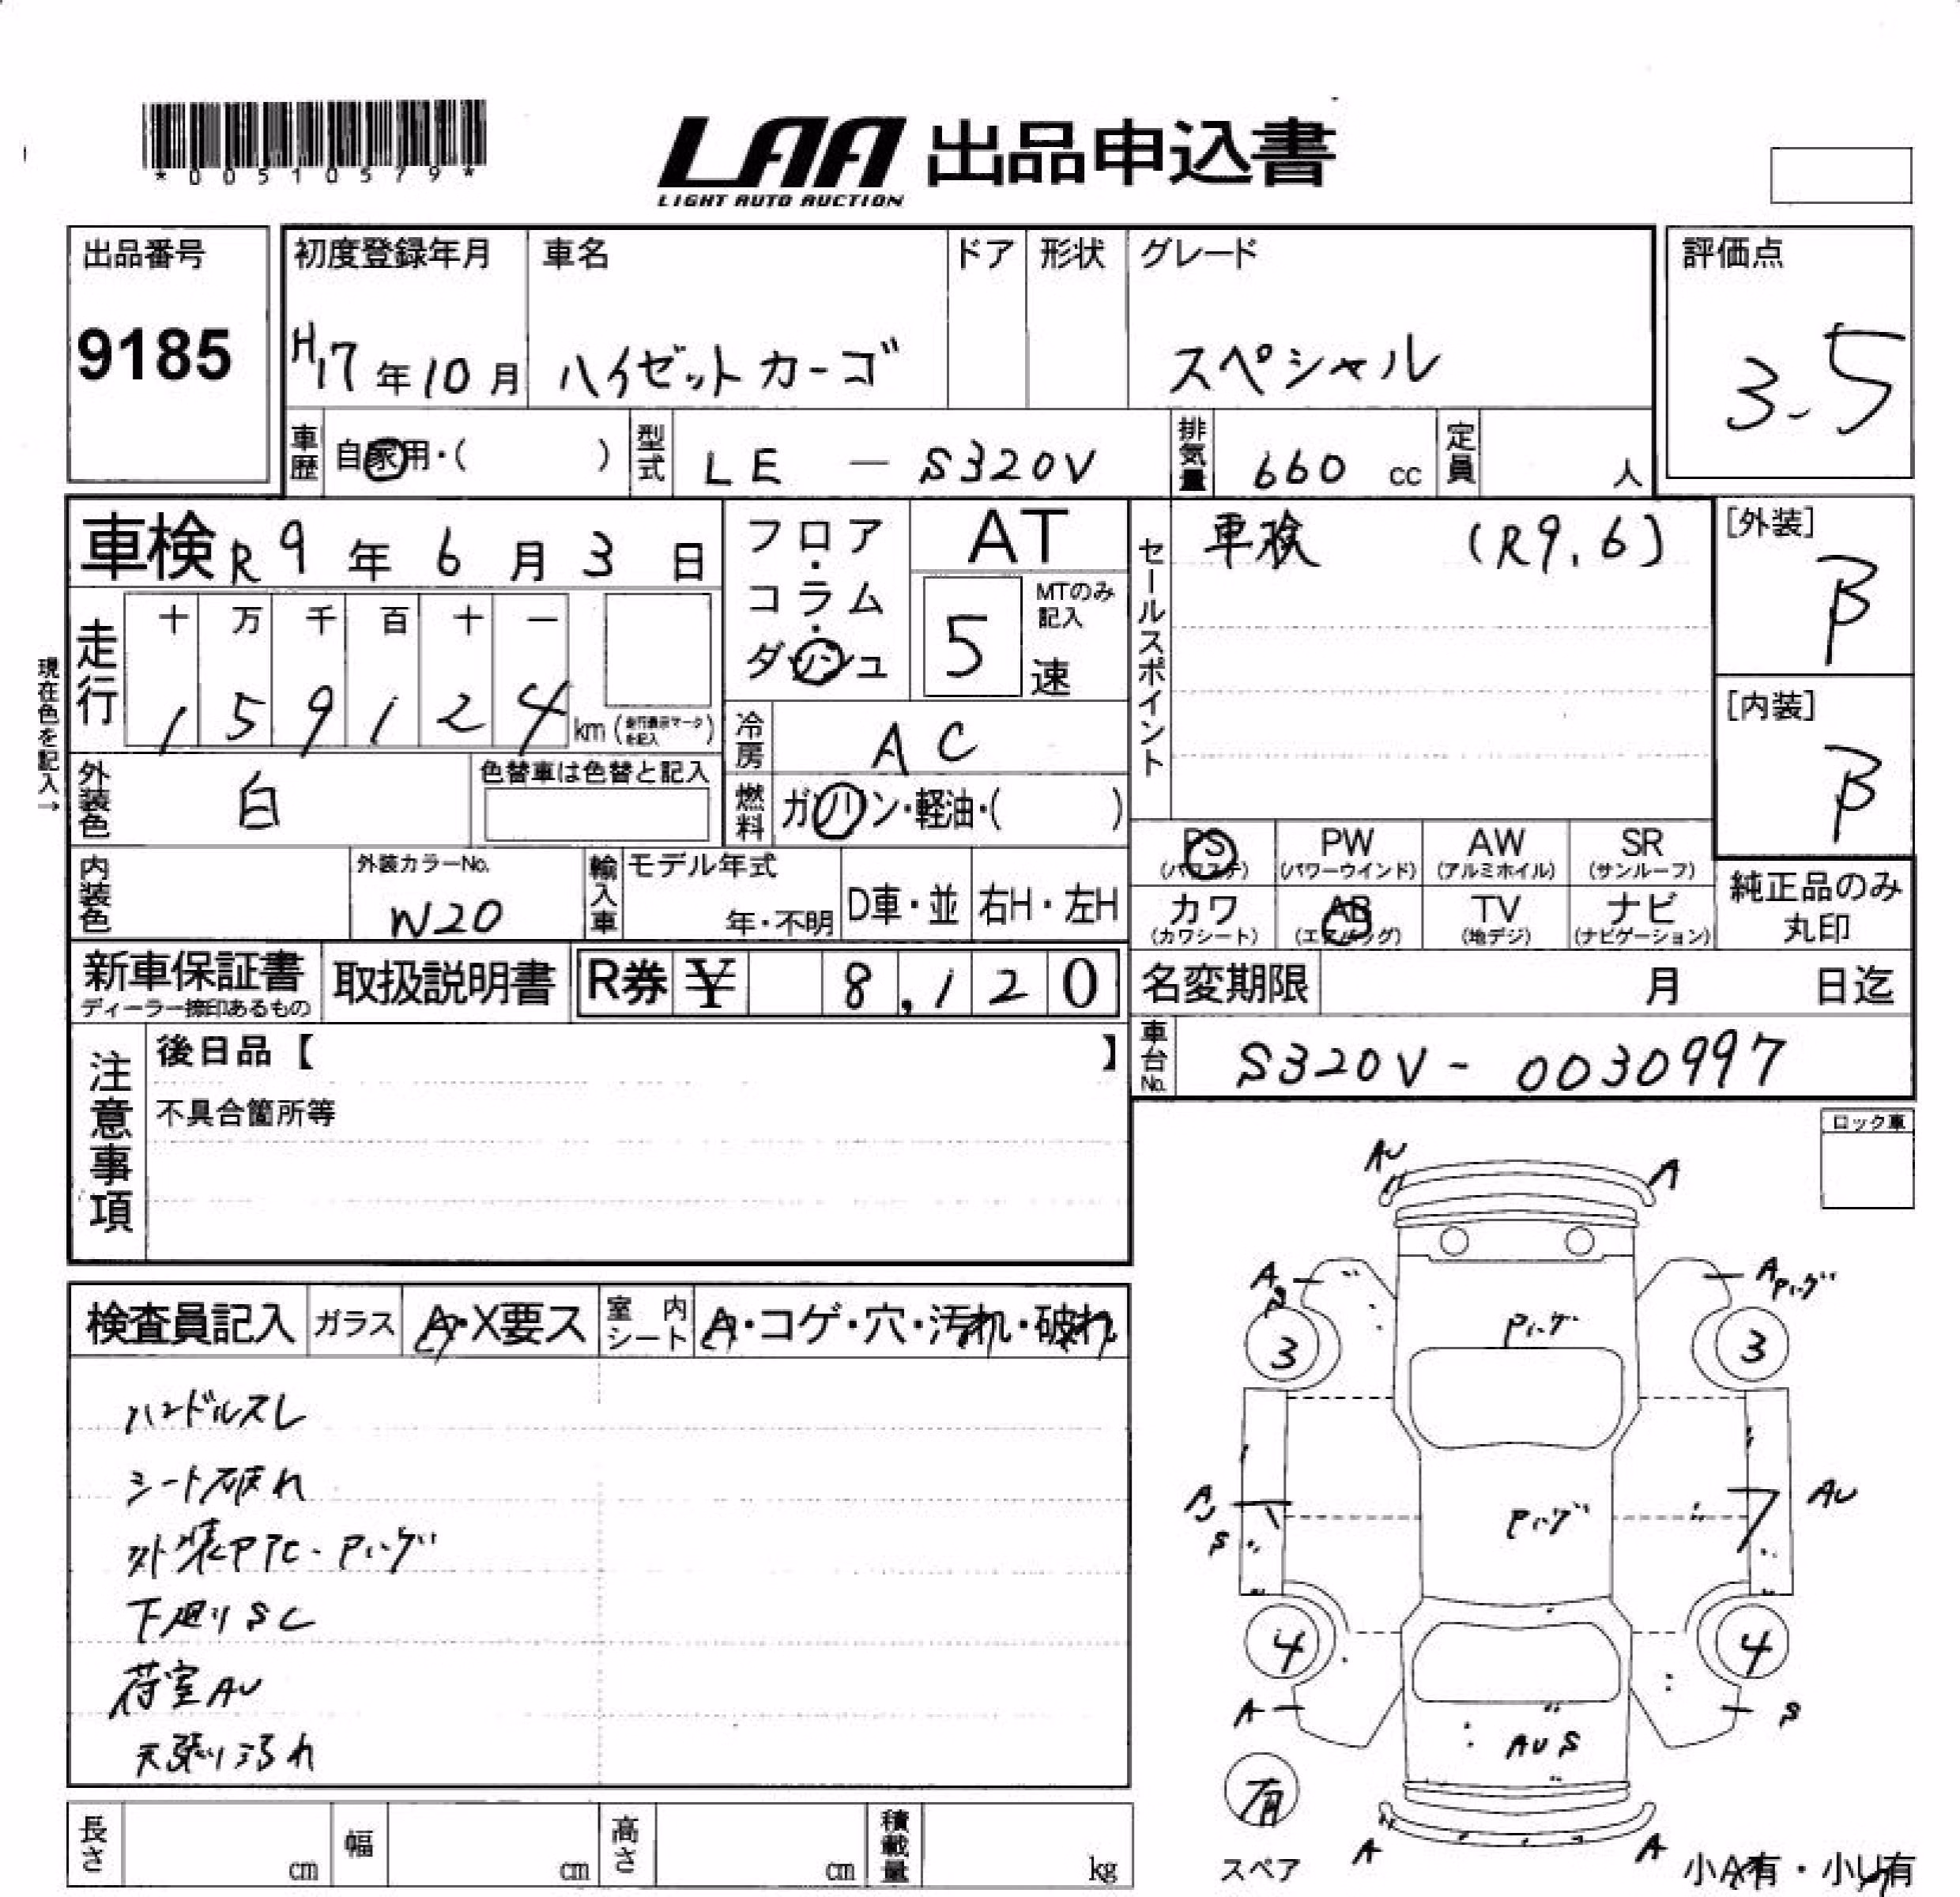 *00510579*
LAA 出品申込書
LIGHT AUTO AUCTION
出品番号
9185
初度登録年月 車名 ドア 形状 グレード
H17年10月 ハイゼットカーゴ スペシャル
評価点
3.5
車歴 自家用・( ) 型式 LE — S320V 排気量 660 cc 定員 人
車検 R9年6月3日
フロア・コラム・ダッシュ
AT
5 MTのみ記入 速
セールスポイント
車検 (R9.6)
[外装]
B
[内装]
B
現在色を記入→
走行 十 万 千 百 十 一
1 5 9 1 2 4 km (走行表示マークを記入)
冷房 AC
外装色 白 色替車は色替と記入
燃料 ガソリン・軽油・( )
PS (パワステ) PW (パワーウインド) AW (アルミホイル) SR (サンルーフ)
カワ (カワシート) AB (エアバッグ) TV (地デジ) ナビ (ナビゲーション)
純正品のみ
丸印
内装色 外装カラーNo. W20 輸入車 モデル年式 年・不明 D車・並 右H・左H
新車保証書 ディーラー捺印あるもの 取扱説明書 R券 ¥ 8,120
名変期限 月 日迄
車台No. S320V - 0030997
注意事項
後日品【 】
不具合箇所等
ロック車
検査員記入 ガラス A・X要ス 室内シート A・コゲ・穴・汚れ・破れ
ハンドルスレ
シート破れ
外装PTC・Pハゲ
下廻りSC
荷室AU
天張り汚れ
AU A
A A Pハゲ
3 Pハゲ 3
A S Pハゲ AU
4 4
A AUS S
有
スペア
A A
小A有・小U有
長さ cm 幅 cm 高さ cm 積載量 kg